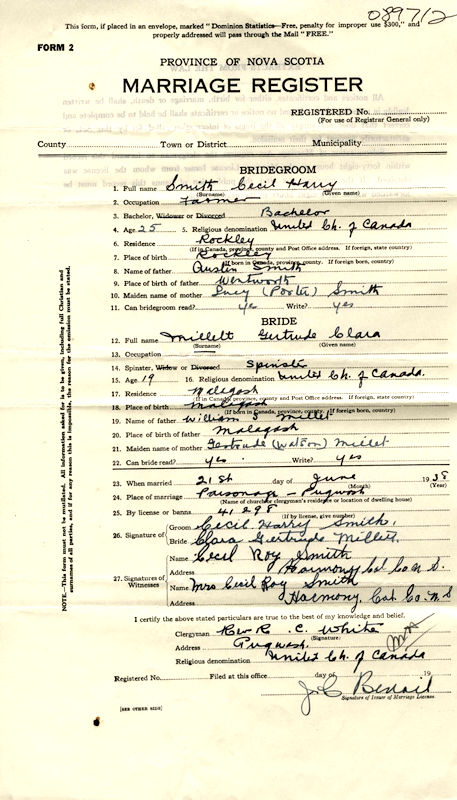 This form, if placed in an envelope, marked "Dominion Statistics—Free, penalty for improper use $300," and
properly addressed will pass through the Mail "FREE."
089712
FORM 2
PROVINCE OF NOVA SCOTIA
MARRIAGE REGISTER
REGISTERED No.
(For use of Registrar General only)
County Town or District Municipality
BRIDEGROOM
1. Full name Smith Cecil Harry
(Surname) (Given name)
2. Occupation Farmer
3. Bachelor, Widower or Divorced Bachelor
4. Age 25 5. Religious denomination United Ch. of Canada
6. Residence Rockley
(If in Canada, province, county and Post Office address. If foreign, state country)
7. Place of birth Rockley
(If born in Canada, province, county. If foreign born, country)
8. Name of father Austin Smith
9. Place of birth of father Wentworth
10. Maiden name of mother Lucy (Porter) Smith
11. Can bridegroom read? yes Write? yes
BRIDE
12. Full name Millett Gertrude Clara
(Surname) (Given name)
13. Occupation
14. Spinster, Widow or Divorced Spinster
15. Age 19 16. Religious denomination United Ch. of Canada.
17. Residence Malagash
(If in Canada, province, county and Post Office address. If foreign, state country)
18. Place of birth Malagash
(If born in Canada, province, county. If foreign born, country)
19. Name of father William S Millet
20. Place of birth of father Malagash
21. Maiden name of mother Gertrude (Watson) Millet
22. Can bride read? yes. Write? yes
23. When married 21st day of June 1938
(Month) (Year)
24. Place of marriage Parsonage - Pugwash
(Name of church or clergyman's residence or location of dwelling house)
25. By license or banns 41298
(If by license, give number)
26. Signature of Groom Cecil Harry Smith.
Bride Clara Gertrude Millett.
Name Cecil Roy Smith
Address Harmony Col Co N. S.
27. Signatures of Witnesses Name Mrs Cecil Roy Smith
Address Harmony, Col. Co. N. S
I certify the above stated particulars are true to the best of my knowledge and belief.
Clergyman Rev R. C. White
(Signature)
Address Pugwash.
Religious denomination United Ch. of Canada
Registered No. Filed at this office day of 19
Signature of Issuer of Marriage License.
[SEE OTHER SIDE]
NOTE.—This form must not be mutilated. All information asked for is to be given, including full Christian and
surnames of all parties, and if for any reason this is impossible, the reason for the omission must be stated.